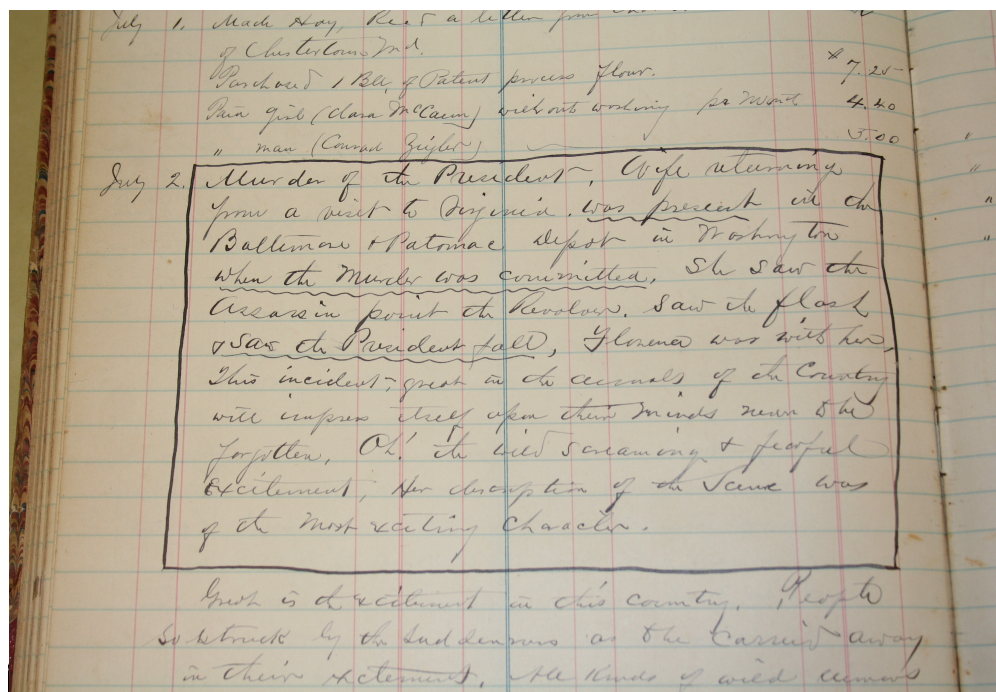 July 1. Made Hay, Rec.d a letter from
of Chestertown Md.
Purchased 1 Bbl, of Patent process flour. $ 7.25
Paid girl (Clara McCann) without washing pr month 4.40
" man (Conrad Zeigler) 5.00
July 2. Murder of the President. Wife returning
from a visit to Virginia. was present in the
Baltimore & Patomac Depot in Washington
when the Murder was committed. She saw the
Assassin point the Revolver. Saw the flash
& saw the President fall, Florence was with her,
This incident, great in the annals of the Country
will impress itself upon their minds never to be
forgotten, Oh! the wild screaming & fearful
Excitement, Her description of the Scene was
of the most exciting Character.
Great is the excitement in this country. People
so struck by the suddenness as to be carried away
in their excitement. All kinds of wild rumors